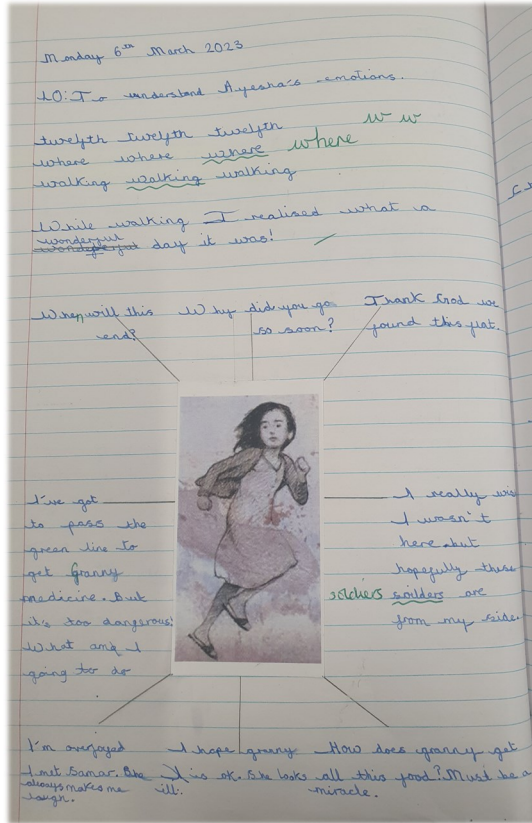 Monday 6th March 2023
LO: To understand Ayesha's emotions.
twelfth twelfth twelfth
w w
where where where where
walking walking walking
While walking I realised what a
wonderful
day it was!
When will this
end?
Why did you go
so soon?
Thank God we
found this flat.
I've got
to pass the
green line to
get Granny
medicine. But
it's too dangerous!
What am I
going to do
I really wis
I wasn't
here but
hopefully these
soldiers soilders are
from my side.
I'm overjoyed
I met Samar. She
always makes me
laugh.
I hope granny
is ok. She looks
ill.
How does granny get
all this food? Must be a
miracle.